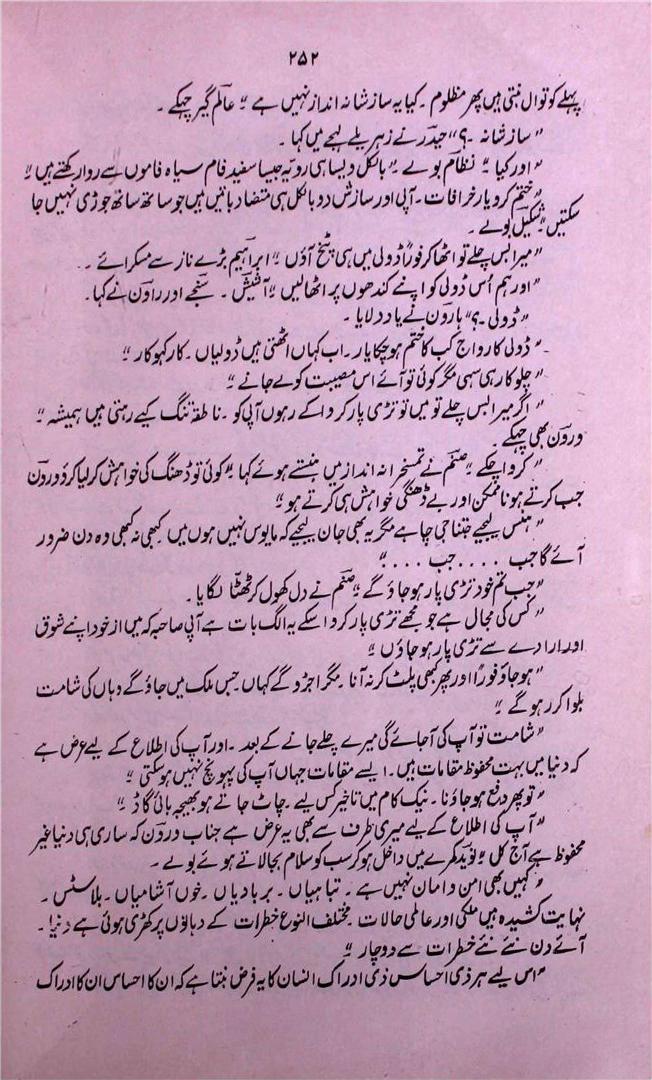 ۲۵۲
پہلے کوتوال بنتی ہیں پھر مظلوم ۔ کیا یہ سازشانہ انداز نہیں ہے ” عالم گیر چہکے ۔
” سازشانہ ۔ ؟“ حیدر نے زہریلے لہجے میں کہا ۔
” اور کیا “ نظام بولے ۔ ” بالکل ویسا ہی رویہ جیسا سفید فام سیاہ فاموں سے روا رکھتے ہیں “
” ختم کرو یار خرافات ۔ آپی اور سازش دو بالکل ہی متضاد باتیں ہیں جو ساتھ ساتھ جوڑی نہیں جا
سکتیں “ شکیل بولے ۔
” میرا بس چلے تو اٹھا کر فوراً ڈولی میں ہی پٹخ آؤں “ ابراہیم بڑے ناز سے مسکرائے ۔
” اور ہم اُس ڈولی کو اپنے کندھوں پر اٹھا لیں “ آشیش ۔ سنجے اور راون نے کہا ۔
” ڈولی ۔ ؟“ ہارون نے یاد دلایا ۔
” ڈولی کا رواج کب کا ختم ہو چکا یار ۔ اب کہاں اٹھتی ہیں ڈولیاں ۔ کار کہو کار “
” چلو کار ہی سہی مگر کوئی تو آئے اس مصیبت کو لے جانے “
” اگر میرا بس چلے تو میں تو تڑی پار کروا کے رہوں آپی کو ۔ ناطقہ تنگ کیے رہتی ہیں ہمیشہ “
ورون بھی چہکے ۔
” کروا چکے “ صنم نے تمسخرانہ انداز میں ہنستے ہوئے کہا ” کوئی تو ڈھنگ کی خواہش کر لیا کرو ورون
جب کرتے ہو ناممکن اور بے ڈھنگی خواہش ہی کرتے ہو “
” ہنس لیجیے جتنا جی چاہے مگر یہ بھی جان لیجیے کہ مایوس نہیں ہوں میں کبھی نہ کبھی وہ دن ضرور
آئے گا جب . . . . جب . . . . “
” جب تم خود تڑی پار ہو جاؤ گے “ صنم نے دل کھول کر ٹھٹھا لگایا ۔
” کس کی مجال ہے جو مجھے تڑی پار کروا سکے یہ الگ بات ہے آپی صاحبہ کہ میں از خود اپنے شوق
اور ارادے سے تڑی پار ہو جاؤں “
” ہو جاؤ فوراً اور پھر کبھی پلٹ کر نہ آنا ۔ مگر اجڑو گے کہاں جس ملک میں جاؤ گے وہاں کی شامت
بلوا کر رہو گے “
” شامت تو آپ کی آجائے گی میرے چلے جانے کے بعد ۔ اور آپ کی اطلاع کے لیے عرض ہے
کہ دنیا میں بہت محفوظ مقامات ہیں ۔ ایسے مقامات جہاں آپ کی پہونچ نہیں ہو سکتی “
” تو پھر دفع ہو جاؤ نا ۔ نیک کام میں تاخیر کس لیے ۔ چاٹ جاتے ہو بھیجہ بائی گاڈ “
” آپ کی اطلاع کے لیے میری طرف سے بھی یہ عرض ہے جناب ورون کہ ساری ہی دنیا غیر
محفوظ ہے آج کل “ نوید کمرے میں داخل ہو کر سب کو سلام بجا لاتے ہوئے بولے ۔
” کہیں بھی امن و امان نہیں ہے ۔ تباہیاں ۔ بربادیاں ۔ خوں آشامیاں ۔ بلاسٹس ۔
نہایت کشیدہ ہیں ملکی اور عالمی حالات ۔ مختلف النوع خطرات کے دہاؤں پر کھڑی ہوئی ہے دنیا ۔
آئے دن نئے نئے خطرات سے دوچار “
” اس لیے ہر ذی احساس ذی ادراک انسان کا یہ فرض بنتا ہے کہ ان کا احساس ان کا ادراک